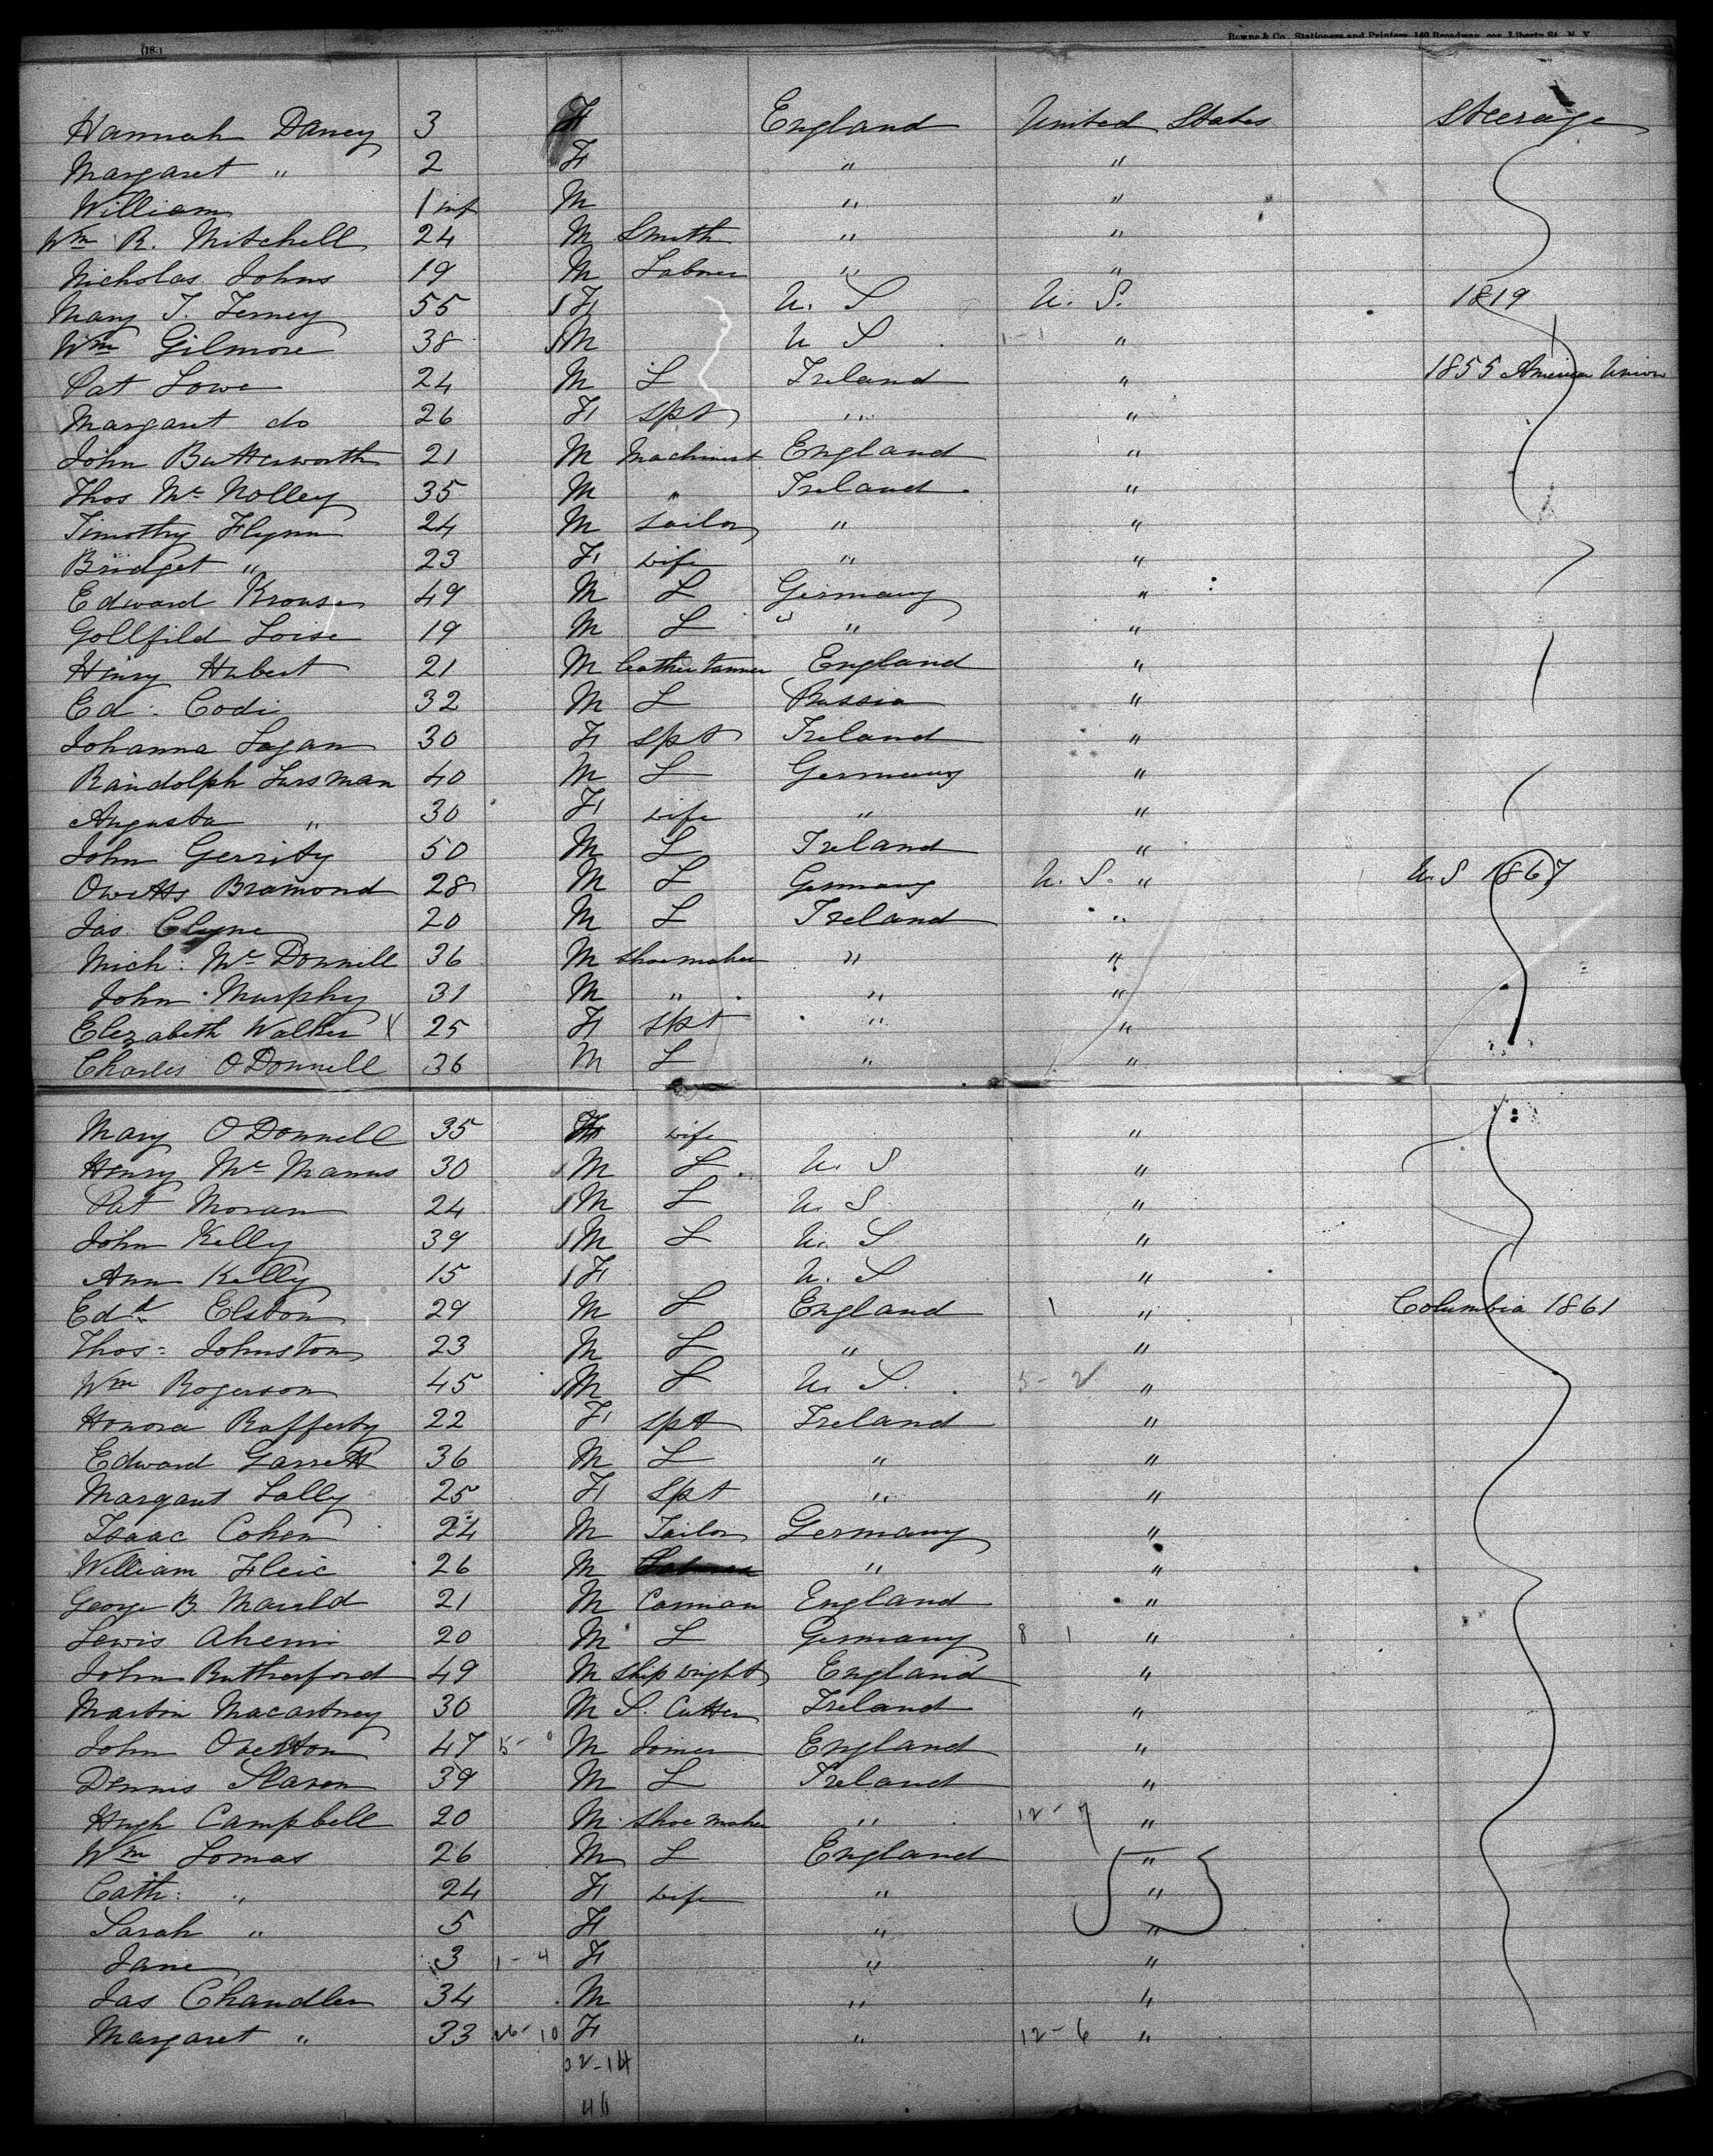 (18.) Bowne & Co., Stationers and Printers, 149 Broadway, cor. Liberty St., N. Y.
Hannah Daney 3 F England United States Steerage
Margaret " 2 F " "
William 1 inf M " "
Wm R. Mitchell 24 M Smith " "
Nicholas Johns 19 M Laborer " "
Mary J. Ferney 55 F U. S U. S. 1819
Wm Gilmore 38 M U S 1-1 "
Pat Lowe 24 M L Ireland " 1855 American Union
Margaret do 26 F Spt " "
John Butterworth 21 M Machinist England "
Thos Mc Nolley 35 M " Ireland "
Timothy Flynn 24 M Sailor " "
Bridget " 23 F wife " "
Edward Krouse 49 M L Germany "
Gollfild Loise 19 M L " "
Henry Hubert 21 M leather tanner England "
Ed. Codi 32 M L Russia "
Johanna Logan 30 F Spt Ireland "
Randolph Lursman 40 M L Germany "
Augusta " 30 F wife " "
John Gerrity 50 M L Ireland "
Owetts Bramond 28 M L Germany U. S. " U. S 1867
Jas. Clyne 20 M L Ireland "
Mich: Mc Donnell 36 M Shoemaker " "
John Murphy 31 M " " "
Elezabeth Walker 25 F Spt " "
Charles O Donnell 36 M L " "
Mary O Donnell 35 F wife "
Henry Mc Manus 30 M L U. S "
Pat Moran 24 M L U. S "
John Kelly 39 M L U. S "
Ann Kelly 15 F U. S "
Edd Elston 29 M L England 1 " Columbia 1861
Thos: Johnston 23 M L " "
Wm Rogerson 45 M L U. S. 5-2 "
Honora Rafferty 22 F Spt Ireland "
Edward Garrett 36 M L " "
Margaret Lally 25 F Spt " "
Isaac Cohen 24 M Tailor Germany "
William Fleic 26 M " "
George B. Marald 21 M Carman England "
Lewis Ahemi 20 M L Germany 8 1 "
John Rutherford 49 M Ship wright England "
Martin Macartney 30 M S. Cutter Ireland "
John Overton 47 5-0 M Joiner England "
Dennis Slaven 39 M L Ireland "
Hugh Campbell 20 M Shoe maker " 12-7 "
Wm Lomas 26 M L England "
Cath: " 24 F wife " "
Sarah " 5 F " "
Jane 3 1-4 F " "
Jas Chandler 34 M " "
Margaret " 33 26-10 F " 12-6 "
55
32-14
46